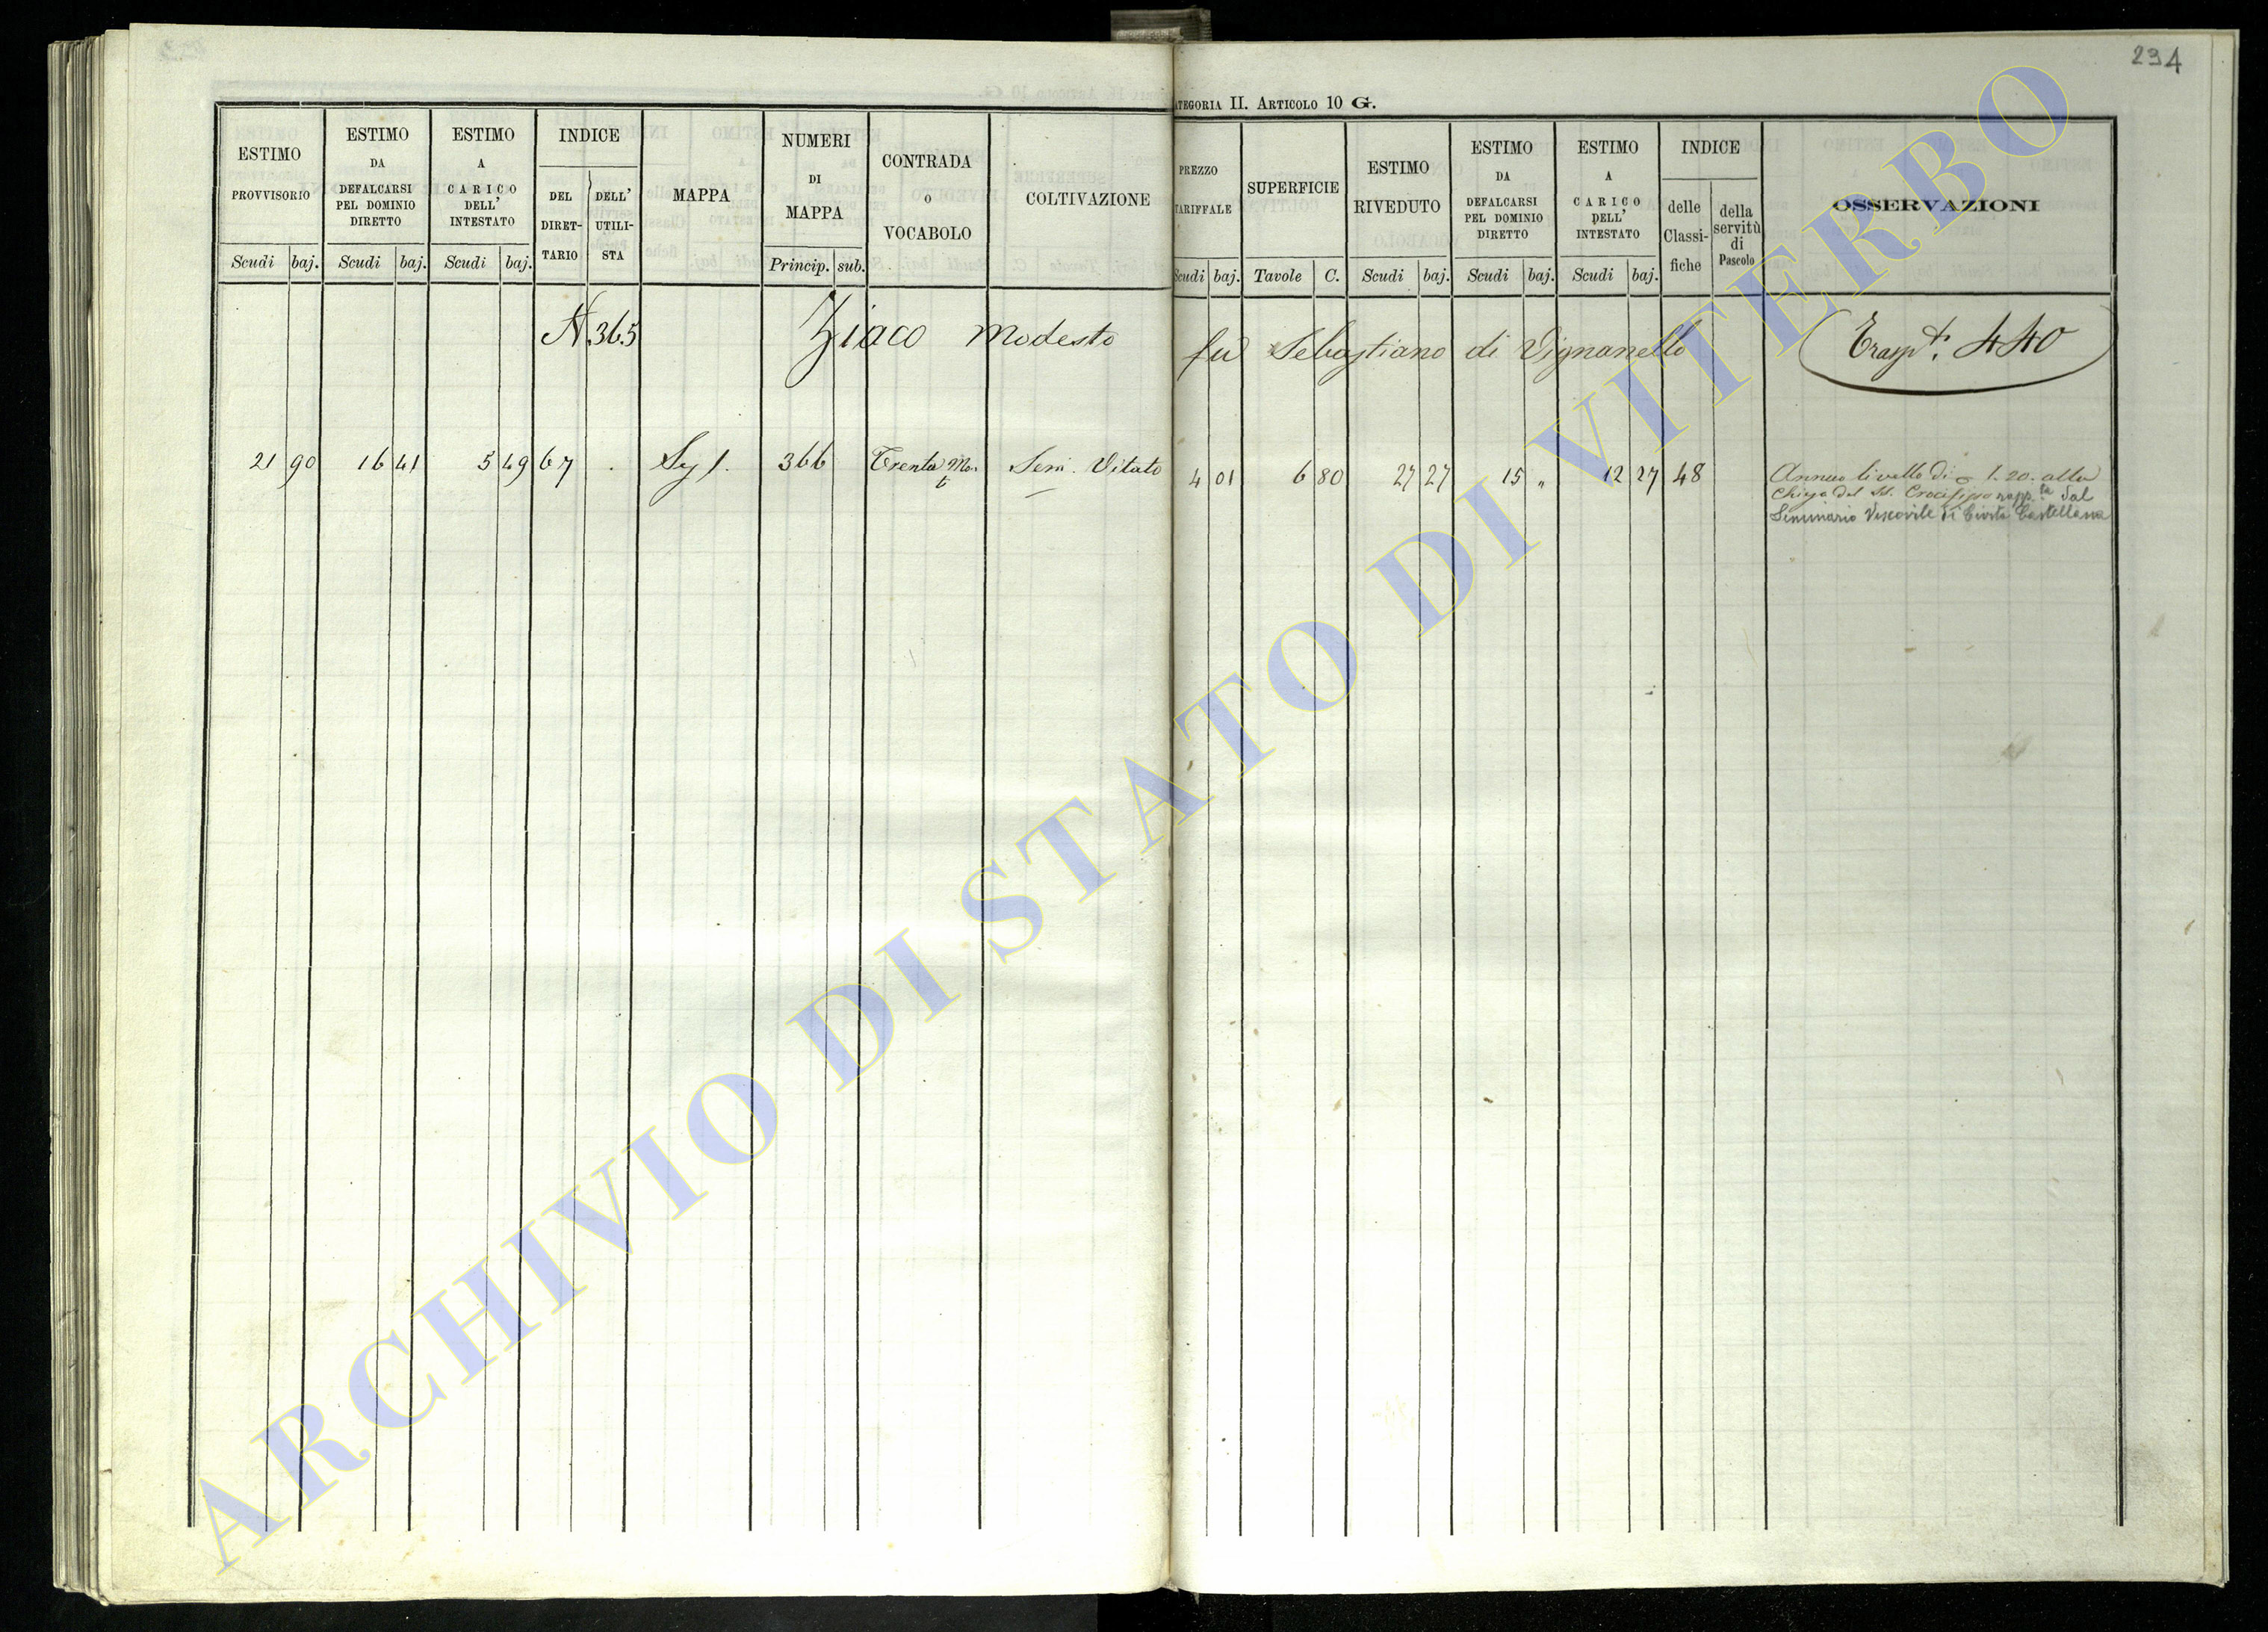 234
CATEGORIA II. ARTICOLO 10 G.
ESTIMO PROVVISORIO
Scudi baj.
ESTIMO DA DEFALCARSI PEL DOMINIO DIRETTO
Scudi baj.
ESTIMO A CARICO DELL' INTESTATO
Scudi baj.
INDICE
DEL DIRET-
TARIO
DELL' UTILI-
STA
MAPPA
NUMERI DI MAPPA
Princip. sub.
CONTRADA O VOCABOLO
COLTIVAZIONE
PREZZO TARIFFALE
Scudi baj.
SUPERFICIE
Tavole C.
ESTIMO RIVEDUTO
Scudi baj.
ESTIMO DA DEFALCARSI PEL DOMINIO DIRETTO
Scudi baj.
ESTIMO A CARICO DELL' INTESTATO
Scudi baj.
INDICE
delle Classi-
fiche
della servitù di Pascolo
OSSERVAZIONI
N. 365 Ziaco Modesto fu Sebastiano di Vignanello 440
21 90 16 41 5 49 67 366 Trenta Sem. Vitato 4 01 6 80 27 27 15 " 12 27 48
Annuo livello di 1.20 alla
Chiesa del SS. Crocifisso rapp.ta dal
Seminario Vescovile di Civita Castellana
ARCHIVIO DI STATO DI VITERBO